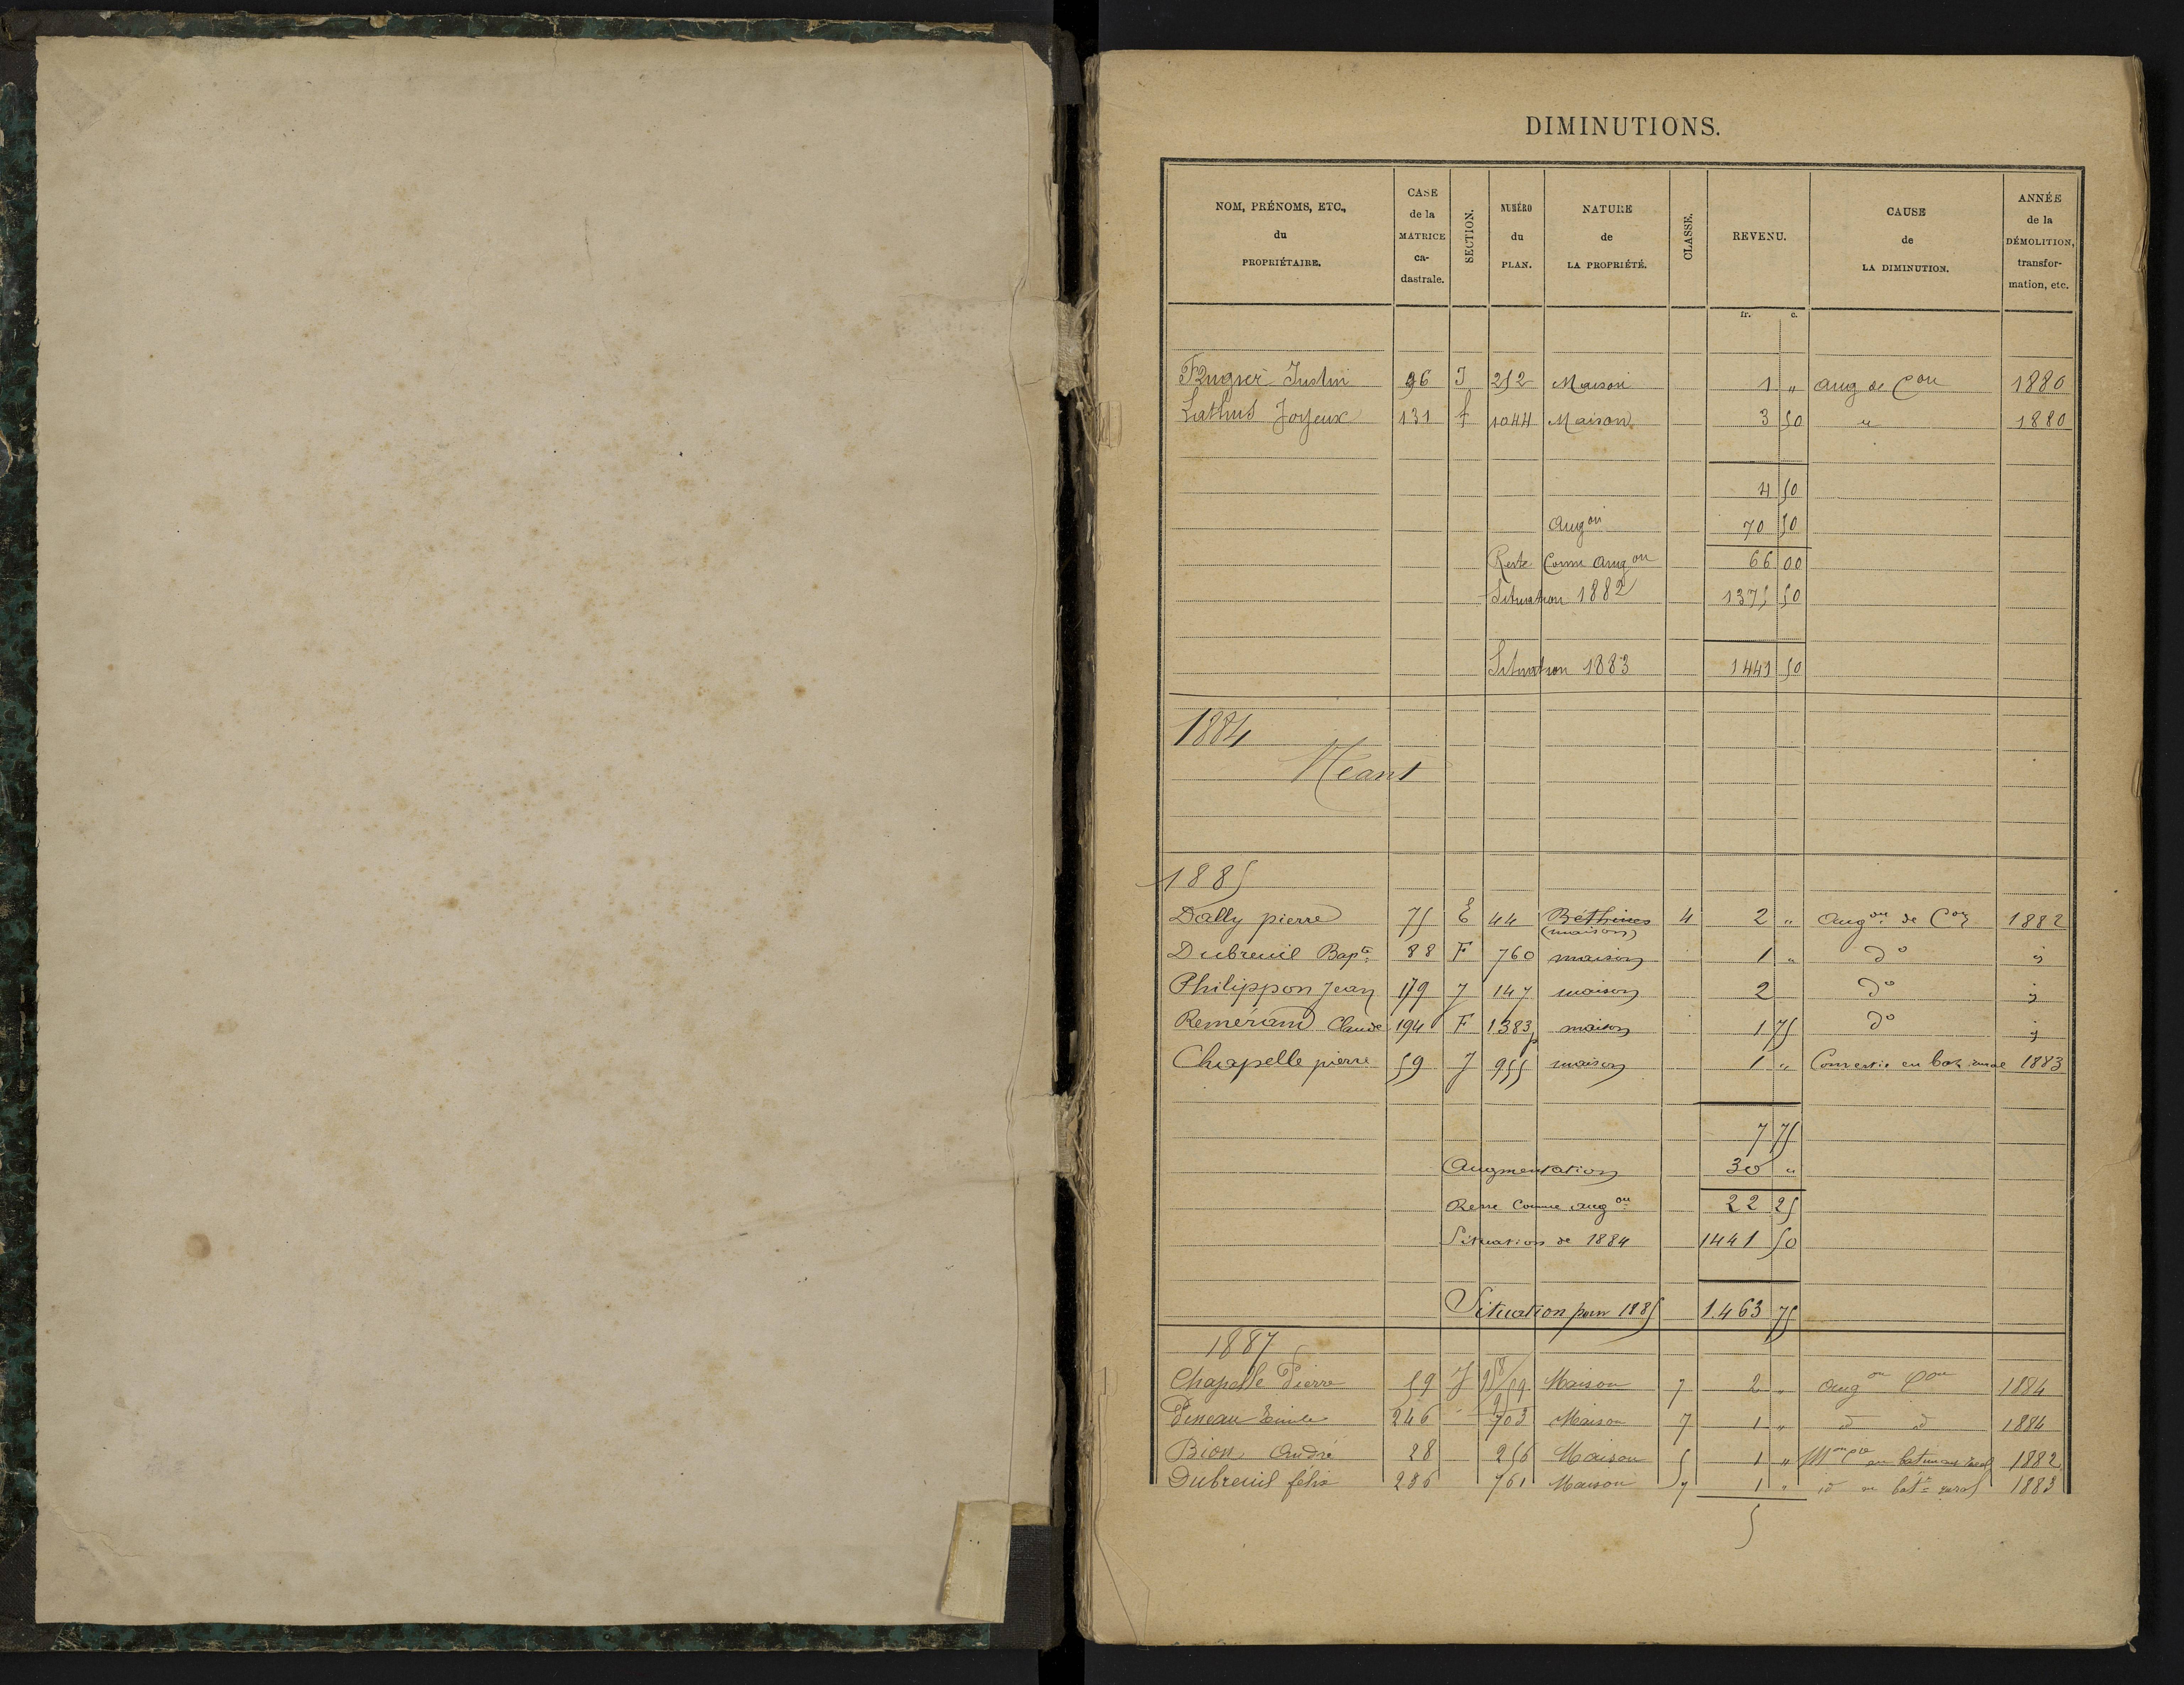 DIMINUTIONS.
NOM, PRÉNOMS, ETC., du PROPRIÉTAIRE.
CASE de la MATRICE ca-dastrale.
SECTION.
NUMÉRO du PLAN.
NATURE de LA PROPRIÉTÉ.
CLASSE.
REVENU.
CAUSE de LA DIMINUTION.
ANNÉE de la DÉMOLITION, transfor-mation, etc.
fr. c.
Justin 96 J 252 Maison 1 " Aug de Con 1880
Lathus Joyeux 131 f 1044 Maison 3 50 " 1880
4 50
Augon 70 50
Reste Comme Augon 66 00
Situation 1882 1375 50
Situation 1883 1441 50
1884
Néant
1885
Dally pierre 75 E 44 Béthines (maison) 4 2 " Augon de Con 1882
Dubreuil Bapte 88 F 760 maison 1 " do "
Philippon Jean 179 J 147 maison 2 do "
Remérand Claude 194 F 1383p maison 1 75 do "
Chapelle pierre 59 J 955 maison 1 " Convertie en bat rural 1883
7 75
Augmentation 30 "
Reste Comme augon 22 25
Situation de 1884 1441 50
Situation pour 1885 1.463 75
1887
Chapelle Pierre 59 J Maison 7 2 " Augon Con 1884
Pineau Emile 246 703 Maison 7 1 " id id 1884
Bion André 28 256 Maison 5 1 " en batiment rural 1882
Dubreuil félix 286 761 Maison 7 1 " id en batt rural 1883
5